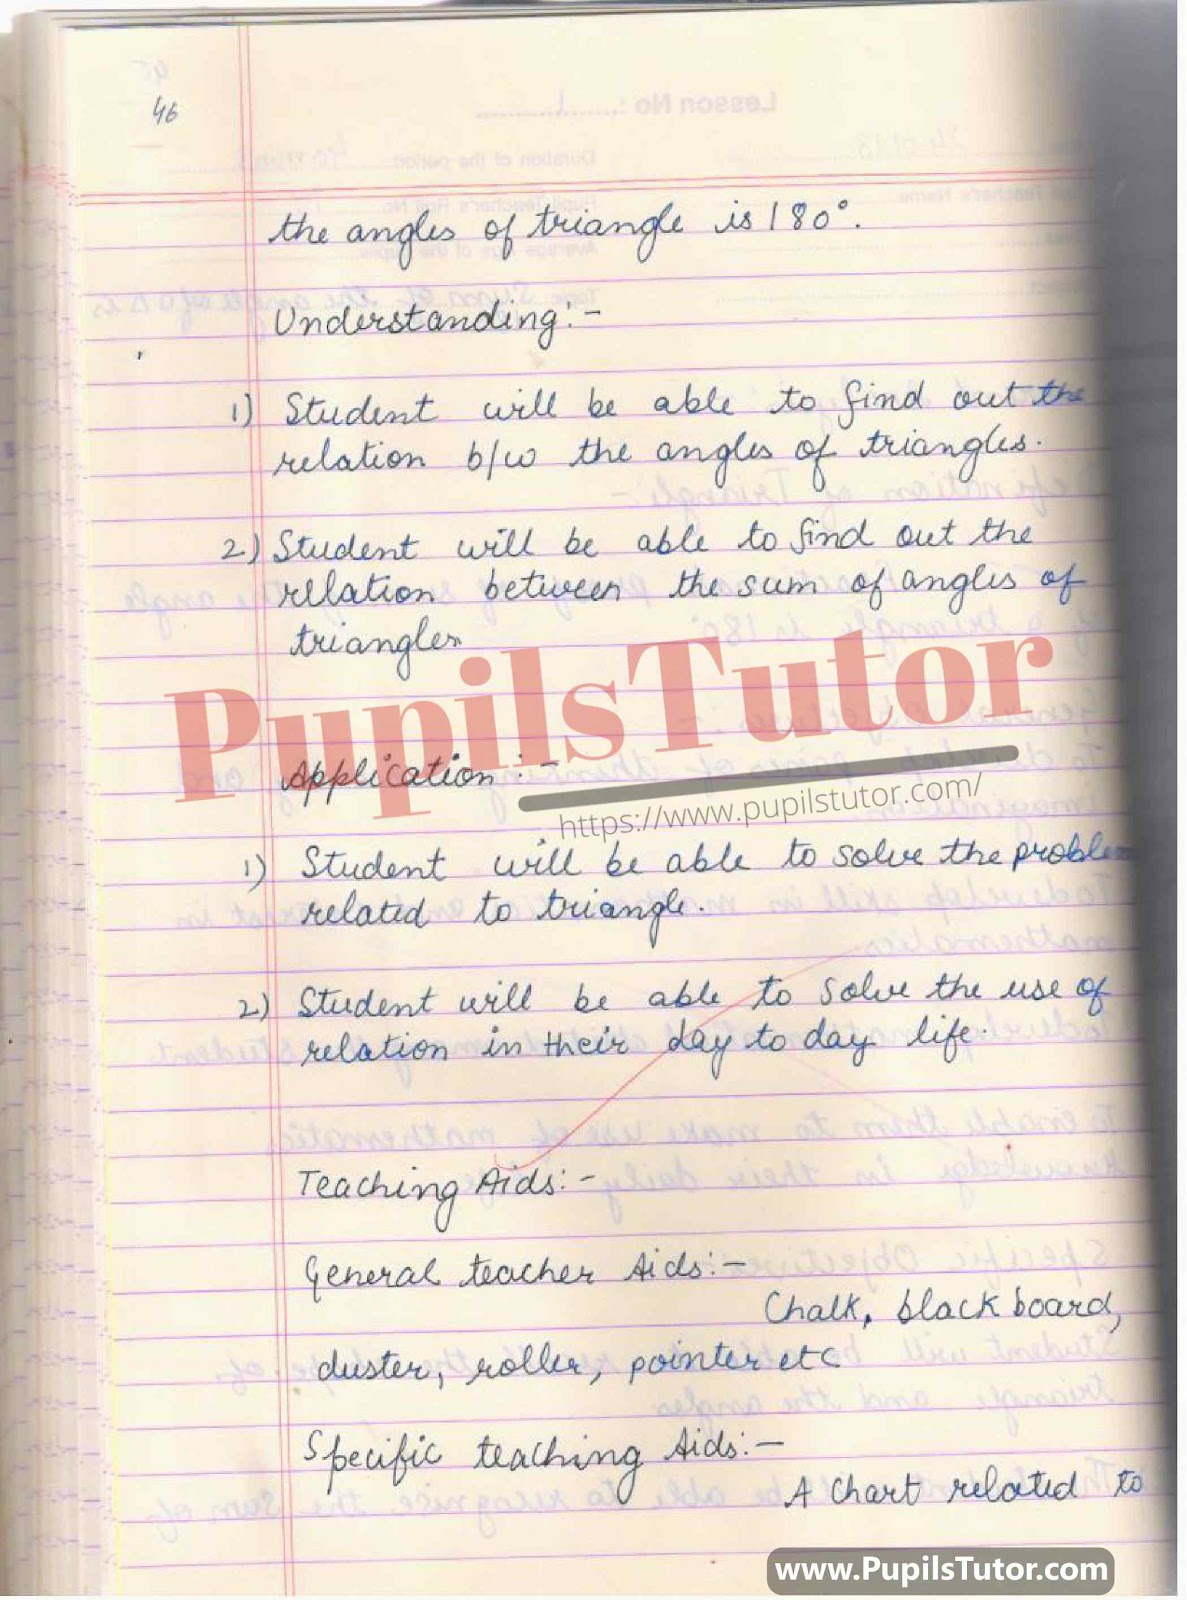 46
the angles of triangle is 180°.
Understanding:-
1) Student will be able to find out the
relation b/w the angles of triangles.
2) Student will be able to find out the
rellation between the sum of angles of
triangles
PupilsTutor
Application:-
https://www.pupilstutor.com/
1) Student will be able to solve the problem
related to triangle.
2) Student will be able to solve the use of
relation in their day to day life.
Teaching Aids:-
General teacher Aids:-
Chalk, black board,
duster, roller, pointer etc
Specific teaching Aids:-
A Chart related to
www.PupilsTutor.com